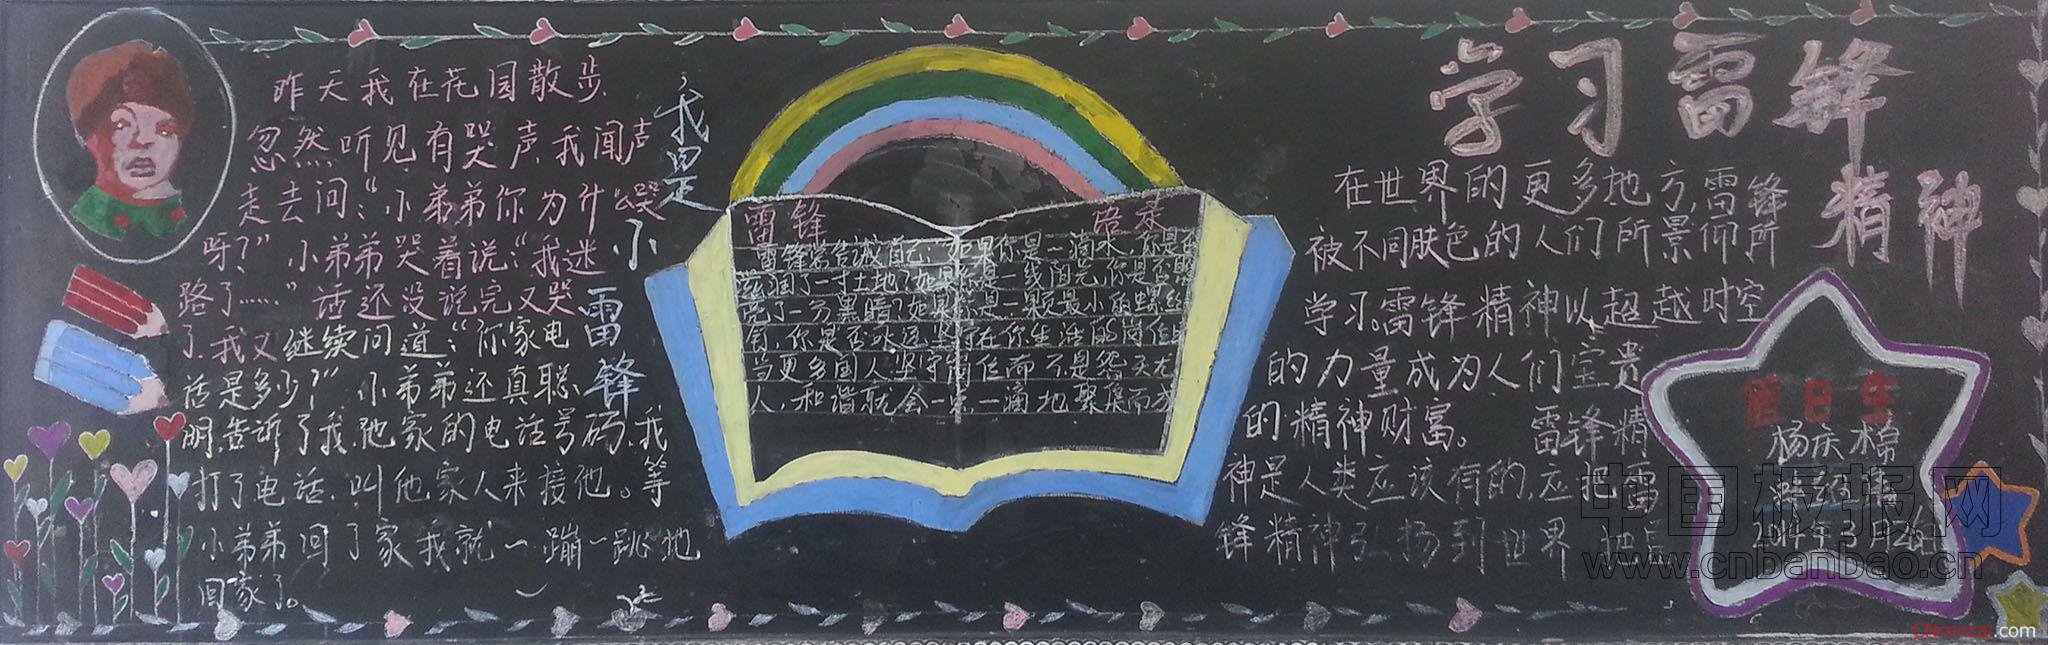 昨天我在花园散步,
忽然听见有哭声,我闻声
走去问:“小弟弟你为什么哭
呀?”小弟弟哭着说:“我迷
路了……”话还没说完又哭
了,我又继续问道:“你家电
话是多少?”小弟弟还真聪
明,告诉了我,他家的电话号码,我
打了电话,叫他家人来接他。等
小弟弟回了家我就一蹦一跳地
回家了。
我是小雷锋
雷锋
雷锋常告诫自己:如果你是一滴水,你是否
滋润了一寸土地?如果你是一线阳光,你是否照
亮了一分黑暗?如果你是一颗最小的螺丝
钉,你是否永远坚守在你生活的岗位
当更多国人坚守岗位而不是怨天尤
人,和谐就会一点一滴地聚集而
学习雷锋
精神
在世界的更多地方,雷锋
被不同肤色的人们所景仰所
学习。雷锋精神以超越时空
的力量成为人们宝贵
的精神财富。 雷锋精
神是人类应该有的,应把雷
锋精神弘扬到世界
值日生
杨庆棉
2014年3月26日
中国板报网
www.cnbanbao.cn
Chrencai.com